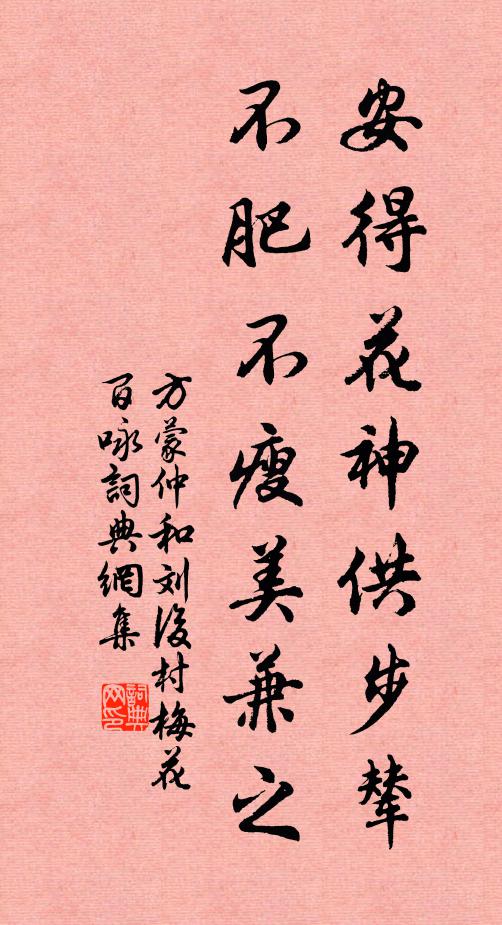 安得花神供步辇
不肥不瘦美兼之
方蒙仲和刘後村梅花
百咏詞典網集
詞典
网印